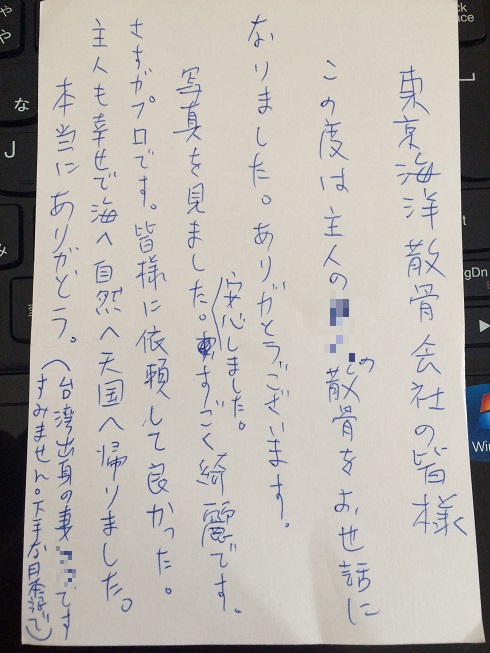 東京海洋散骨会社の皆様
この度は主人の の散骨をお世話に
なりました。ありがとうございます。
写真を見ました。安心しました。すごく綺麗です。
さすがプロです。皆様に依頼して良かった。
主人も幸せで海へ自然へ天国へ帰りました。
本当にありがとう。(台湾出身の妻 です
すみません。下手な日本語で)
や
や
な
J
み
ack
pace
gDn
Win